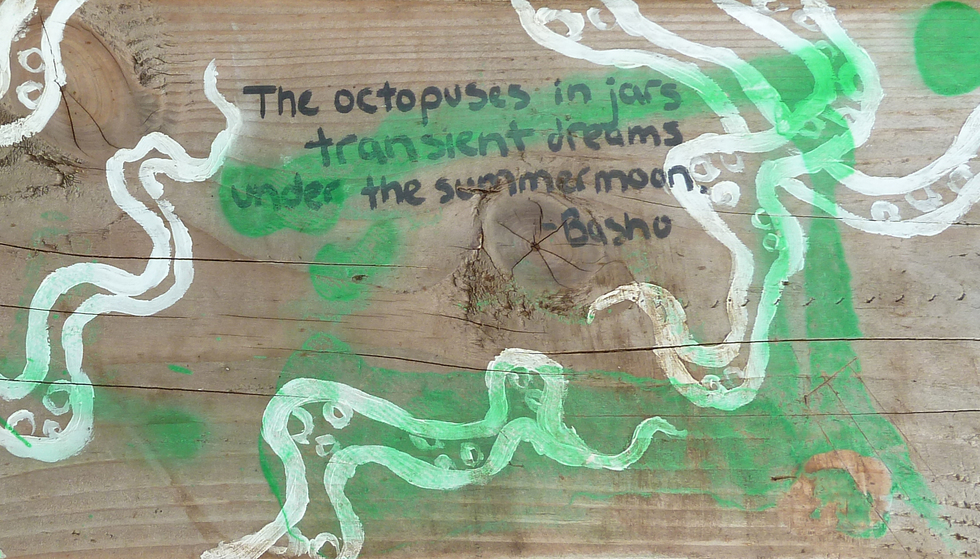 The octopuses in jars
transient dreams
under the summer moon.
-Basho